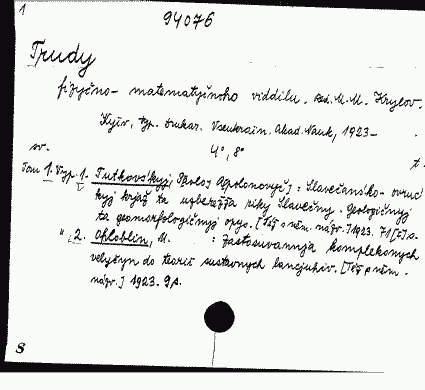 1
94076
Trudy
fizyčno-matematyčnoho viddilu. Red. M. M. Krylov.
Kyiv, typ. drukar. Vseukrain. Akad. Nauk, 1923-
4°, 8°
sv. t.
Tom 1. Vyp. 1. Tutkovskyj, Pavlo Apolonovyč: Slovečansko-ovruč
kyj krjaž ta uzberežžja riky Slavečny. Geologičnyj
ta geomorfologičnyj opys. [Též s něm. názv.] 1923.
" , 2. Ohloblin, M. : Zastosuvannja kompleksnych
velyčyn do teorii sustavnych lancjuhiv. [Též s něm.
názv.] 1923. 9 s.
S